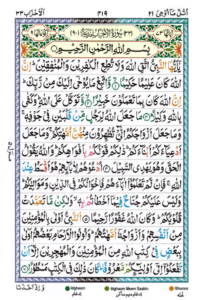 اتل ما اوحی ٢١
٤١٩
الاحزاب ٣٣
بِسْمِ اللّٰهِ الرَّحْمٰنِ الرَّحِيْمِ
يٰۤاَيُّهَا النَّبِىُّ اتَّقِ اللّٰهَ وَلَا تُطِعِ الْكٰفِرِيْنَ وَالْمُنٰفِقِيْنَ اِنَّ
اللّٰهَ كَانَ عَلِيْمًا حَكِيْمًا وَّاتَّبِعْ مَا يُوْحٰۤى اِلَيْكَ مِنْ رَّبِّكَ
اِنَّ اللّٰهَ كَانَ بِمَا تَعْمَلُوْنَ خَبِيْرًا وَّتَوَكَّلْ عَلَى اللّٰهِ وَكَفٰى
بِاللّٰهِ وَكِيْلًا مَا جَعَلَ اللّٰهُ لِرَجُلٍ مِّنْ قَلْبَيْنِ فِىْ جَوْفِهٖ
وَمَا جَعَلَ اَزْوَاجَكُمُ الّٰٓـئِْ تُظٰهِرُوْنَ مِنْهُنَّ اُمَّهٰتِكُمْ وَمَا جَعَلَ
اَدْعِيَآءَكُمْ اَبْنَآءَكُمْ ذٰلِكُمْ قَوْلُكُمْ بِاَفْوَاهِكُمْ وَاللّٰهُ يَقُوْلُ
الْحَقَّ وَهُوَ يَهْدِى السَّبِيْلَ اُدْعُوْهُمْ لِاٰبَآئِهِمْ هُوَ اَقْسَطُ عِنْدَ
اللّٰهِ فَاِنْ لَّمْ تَعْلَمُوْۤا اٰبَآءَهُمْ فَاِخْوَانُكُمْ فِى الدِّيْنِ وَمَوَالِيْكُمْ
وَلَيْسَ عَلَيْكُمْ جُنَاحٌ فِيْمَاۤ اَخْطَاْتُمْ بِهٖ وَلٰكِنْ مَّا تَعَمَّدَتْ
قُلُوْبُكُمْ وَكَانَ اللّٰهُ غَفُوْرًا رَّحِيْمًا اَلنَّبِىُّ اَوْلٰى بِالْمُؤْمِنِيْنَ
مِنْ اَنْفُسِهِمْ وَاَزْوَاجُهٗۤ اُمَّهٰتُهُمْ وَاُولُوا الْاَرْحَامِ بَعْضُهُمْ اَوْلٰى
بِبَعْضٍ فِىْ كِتٰبِ اللّٰهِ مِنَ الْمُؤْمِنِيْنَ وَالْمُهٰجِرِيْنَ اِلَّاۤ اَنْ
تَفْعَلُوْۤا اِلٰٓى اَوْلِيٰٓئِكُمْ مَّعْرُوْفًا كَانَ ذٰلِكَ فِى الْكِتٰبِ مَسْطُوْرًا
وَاِذْ اَخَذْنَا